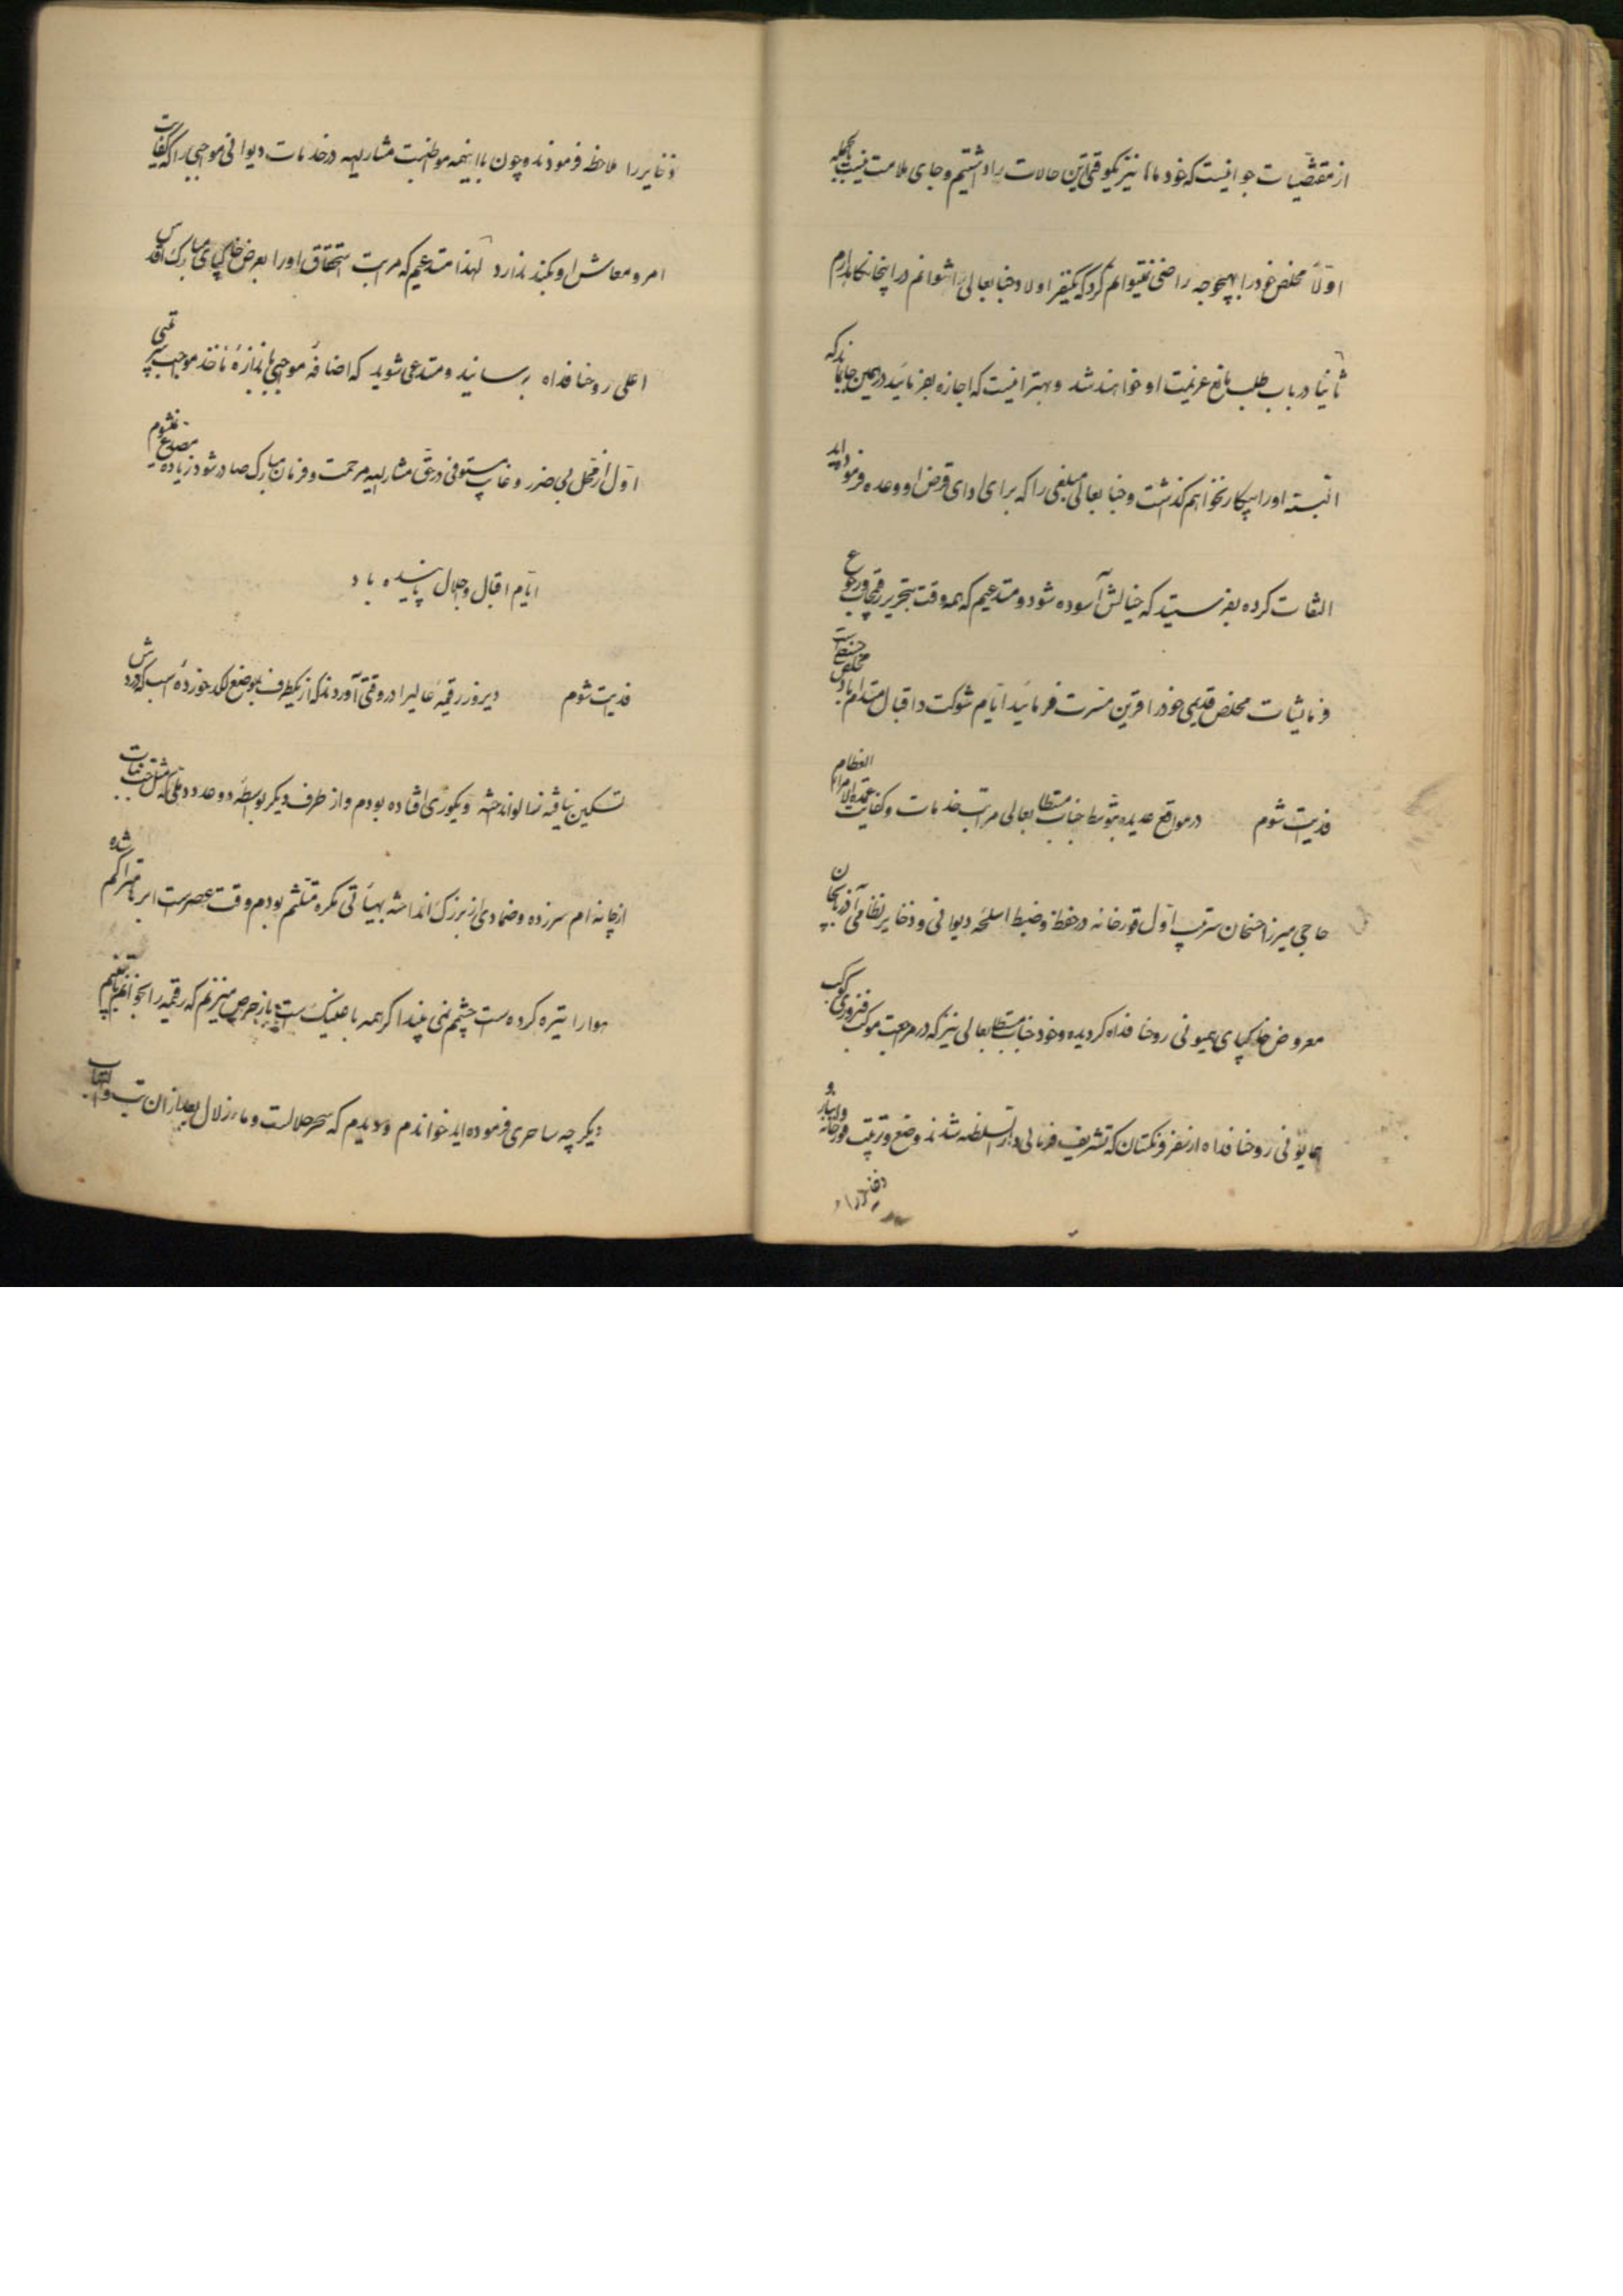 از مقتضیات جوانیست که خود ماها نیز یکوقتی این حالات را داشتیم و جای ملامت نیست بحمله
اولاً مخلص خود را بهیچوجه راضی نمیتوانم کرد که یکنفر اولاد جنابعالی را نتوانم در اینجا نگاهدارم
ثانیاً در باب طلب مانع عزیمت او خواهند شد و بهتر اینست که اجازه بفرمائید در همین جا بماند که
البته او را بیکار نخواهم گذاشت و جنابعالی مبلغی را که برای ادای قرض او وعده فرموده‌اید
التفات کرده بفرستید که خیالش آسوده شود و مستدعیم که همه وقت بتحریر رقیمجات و رجوع
فرمایشات مخلص قدیمی خود را قرین مسرت فرمائید ایام شوکت و اقبال مستدام باد
فدیت شوم در مواقع عدیده بتوسط جناب مستطابعالی مراتب خدمات و کفایت عمدة الامراء العظام
حاجی میرزا حسنخان سرتیپ اول قورخانه در حفظ و ضبط اسلحه دیوانی و ذخایر نظامی آذربایجان
معروض خاکپای همیونی روحنا فداه گردیده و خود جناب مستطابعالی نیز که در مراجعت موکب فیروزی کوکب
همایونی روحنا فداه از سفر فرنگستان که تشریف فرمای دارالسلطنه شدند وضع و ترتیب قورخانه و انبار و
ذخایر را ملاحظه فرمودند و چون با اینهمه مواظبت مشارالیه در خدمات دیوانی مواجبی را که کفایت
امر و معاش او بکند ندارد لهذا مستدعیم که مراتب استحقاق او را بعرض خاکپای مبارک اقدس
اعلی روحنا فداه برسانید و مستدعی شوید که اضافه مواجبی باندازه مأخذ مواجب سرتیپی
اول از محل بی ضرر و غایب متوفی در حق مشارالیه مرحمت و فرمان مبارک صادر شود زیاده مصدع نمیشوم
ایام اقبال و جلال پاینده باد
فدیت شوم دیروز رقیمه عالی را در وقتی آوردند که از یکطرف بموضع لگد خورده اسب که دردش
تسکین نیافته زالو انداخته و یکوری افتاده بودم و از طرف دیگر بواسطه دو عدد دملی که
از چانه‌ام سر زده و ضمادی از بزرک انداخته بهیأتی مکره متلثم بودم وقت عصر است ابرها متراکم شده
هوا را تیره کرده‌ست چشم نمی بیند اگر همه با عینک است باز حرص میزنم که رقیمه را بخوانم
دیگر چه ساحری فرموده‌اید خواندم و دیدم که سحر حلالست و ماء زلال بعد از آن